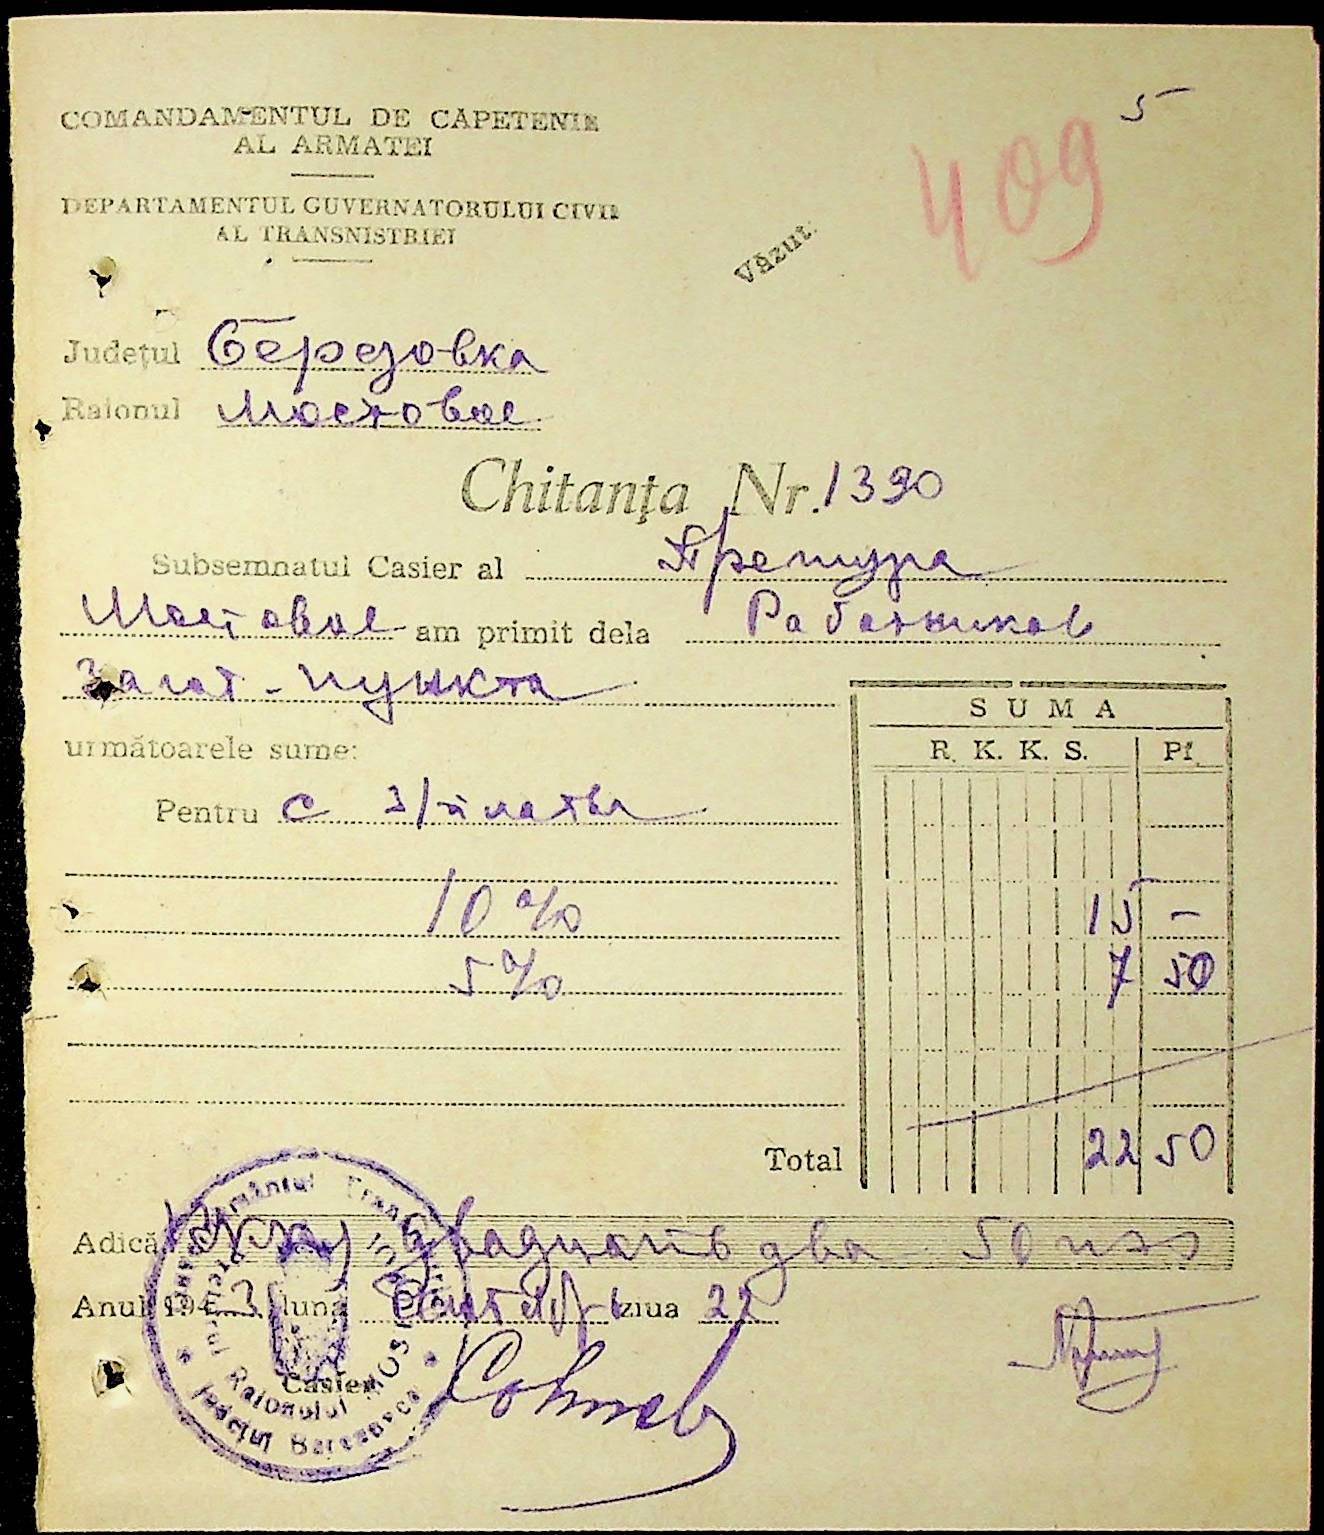 5
409
COMANDAMENTUL DE CAPETENIE
AL ARMATEI
DEPARTAMENTUL GUVERNATORULUI CIVIL
AL TRANSNISTRIEI
Văzut.
Județul Березовка
Raionul Мостовое
Chitanța Nr. 1390
Subsemnatul Casier al Претура
Мостовое am primit dela Работников
Загот-пункта
SUMA
următoarele sume:
R. K. K. S. Pf.
Pentru с з/платы
10% 15 –
5% 7 50
Total 22 50
Adică двадцать два 50
Anul 1943 luna ziua 22
Casier
Raionului
Județul Berezovca